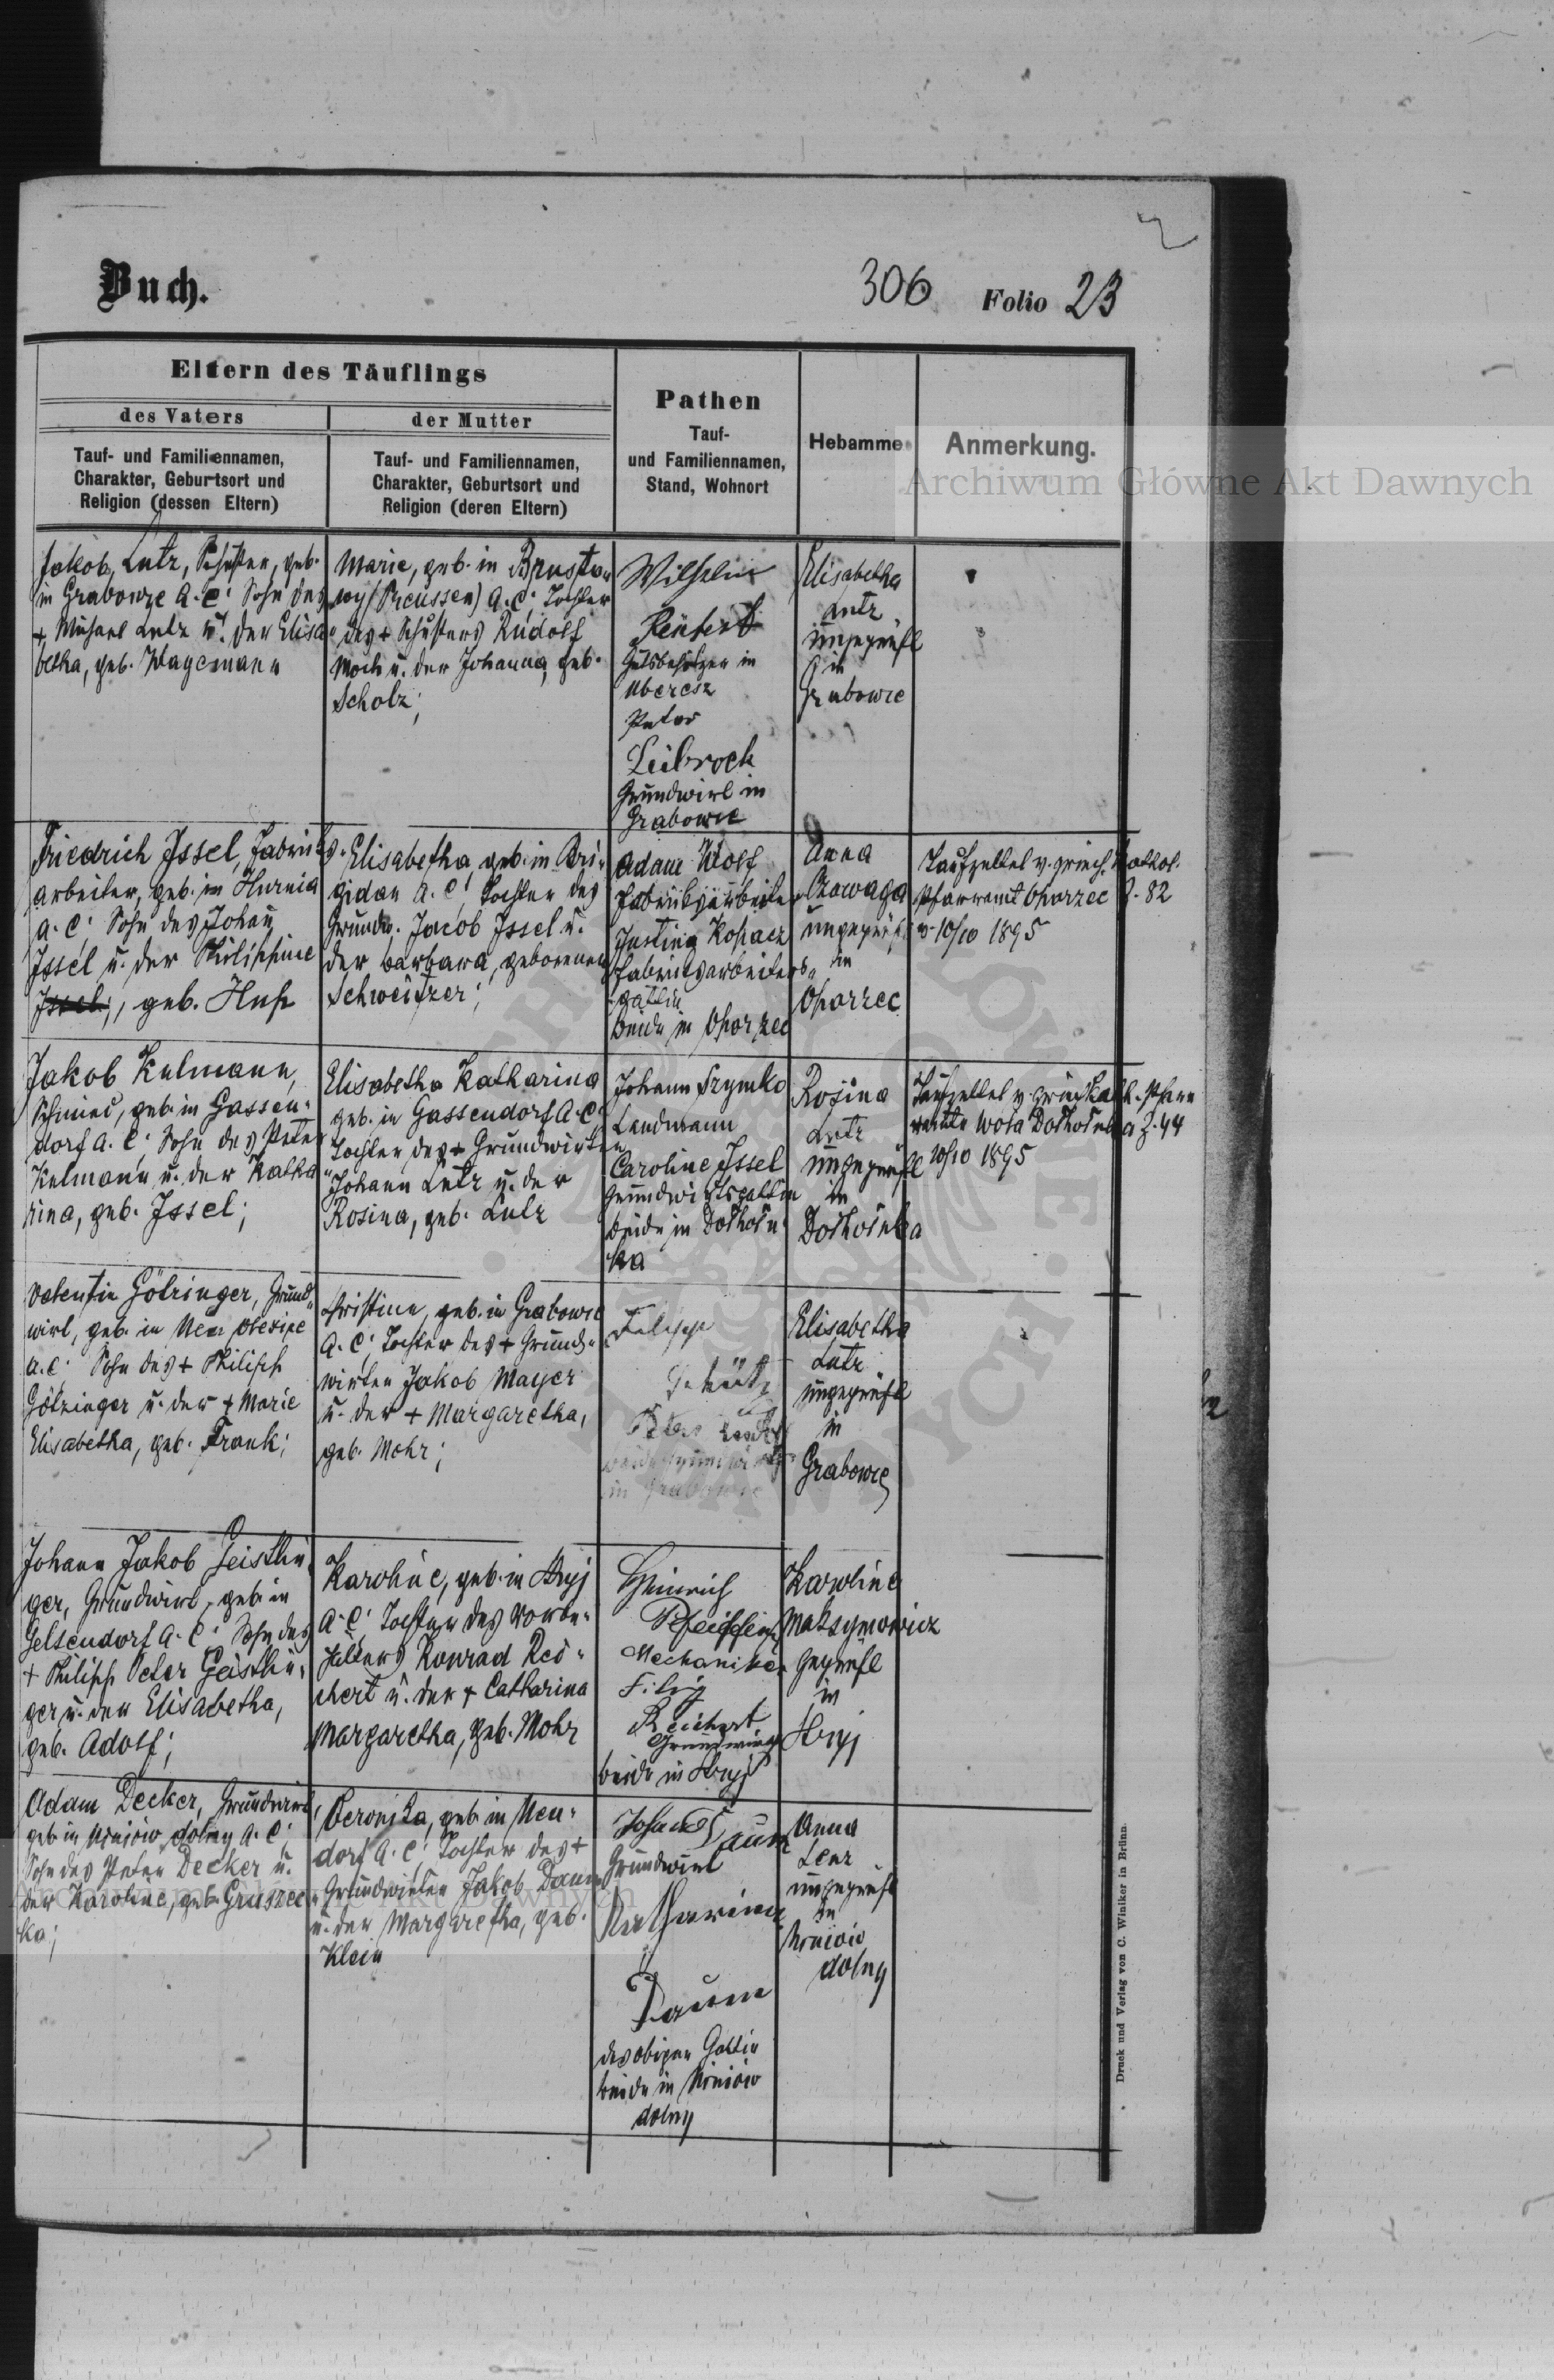 Buch.
306 Folio 23
Eltern des Täuflings
des Vaters
der Mutter
Tauf- und Familiennamen,
Charakter, Geburtsort und
Religion (dessen Eltern)
Tauf- und Familiennamen,
Charakter, Geburtsort und
Religion (deren Eltern)
Pathen
Tauf-
und Familiennamen,
Stand, Wohnort
Hebamme
Anmerkung.
Archiwum Główne Akt Dawnych
Jakob Lutz, Schuster, geb.
in Grabowze A. C. Sohn des
+ Michael Lutz u. der Elisa
betha, geb. Wagemann
Marie, geb. in
(Preussen) A. C., Tochter
des + Schusters Rudolf
u. der Johanna, geb.
Scholz;
Wilhelm
Gutsbesitzer in
Peter
Leibrock
Grundwirt in
Grabowie
Elisabetha
Lutz
ungeprüft
in
Grabowie
Friedrich Issel, Fabriks-
arbeiter, geb. in Hurnia
A. C. Sohn des Johan
Issel u. der Philippine
Issel, geb.
Elisabetha, geb. in Bri-
gidau A. C. Tochter des
Grundw. Jacob Issel u.
der Barbara, geborenen
Schweitzer;
Adam Wolf
Fabriksarbeiter
Justina Kopacz
Fabriksarbeiters-
gattin
beide in Oporzec
Anna
ungeprüft
in
Oporzec
Taufzettel v. griech. kathol.
Pfarramt Oporzec Z. 82
v. 10/10 1895
Jakob Kulmann,
Schmied, geb. in Gassen-
dorf A. C. Sohn des Peter
Kulmann u. der Katha
rina, geb. Issel;
Elisabetha Katharina
geb. in Gassendorf A. C.
Tochter des + Grundwirten
Johann Lutz u. der
Rosina, geb. Lutz
Johann Szymko
Landmann
Caroline Issel
Grundwirtsgattin
beide in Dołhołu
ka
Rosina
Lutz
ungeprüft
in
Dołhołuka
Taufzettel v. griech. kath. Pfarr
amte Wola Dołhołuka Z. 44
10/10 1895
Valentin Götzinger, Grund-
wirt, geb. in Neu
A. C. Sohn des + Philipp
Götzinger u. der + Marie
Elisabetha, geb. Frank;
Christine, geb. in Grabowie
A. C. Tochter des + Grund-
wirten Jakob Mayer
u. der + Margaretha,
geb. Mohr;
Peter
in Grabowie
Elisabetha
Lutz
ungeprüft
in
Grabowie
Johann Jakob Geistlin-
ger, Grundwirt, geb. in
Gelsendorf A. C. Sohn des
+ Philipp Peter Geistlin-
ger u. der Elisabetha,
geb. Adolf;
Karoline, geb. in Stryj
A. C. Tochter des
Konrad Rei-
chert u. der + Catharina
Margaretha, geb. Mohr
Heinrich
Mechaniker
Filip
Reichert
Grundwirt
beide in Stryj
Karoline
Maksymowicz
geprüft
in
Stryj
Adam Decker, Grundwirt,
geb. in dolny A. C.
Sohn des Peter Decker u.
der Karoline, geb. Gruszec
ka;
Veronika, geb. in Neu-
dorf A. C. Tochter des +
Grundwirten Jakob Daum
u. der Margaretha, geb.
Klein
Daum
Grundwirt
Katharina
Daum
des obigen Gattin
beide in
dolny
Anna
Lenz
ungeprüft
in
dolny
Archiwum Główne Akt Dawnych
Druck und Verlag von C. Winiker in Brünn.